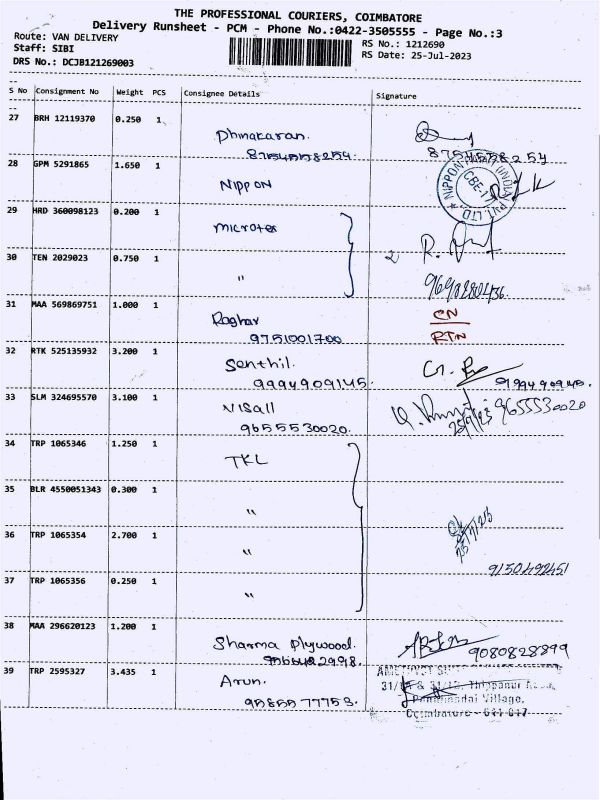 THE PROFESSIONAL COURIERS, COIMBATORE
Delivery Runsheet - PCM - Phone No.:0422-3505555 - Page No.:3
Route: VAN DELIVERY
RS No.: 1212690
Staff: SIBI
RS Date: 25-Jul-2023
DRS No.: DCJB121269003
S No Consignment No Weight PCS Consignee Details Signature
27 BRH 12119370 0.250 1
Dhinakaran.
8754558254. 8754558254
28 GPM 5291865 1.650 1
NIPPON
29 HRD 360098123 0.200 1
microtex
30 TEN 2029023 0.750 1
"
31 MAA 569869751 1.000 1
Raghav CN
9751001700 RTN
32 RTK 525135932 3.200 1
Senthil.
9994909145. 9994909145.
33 SLM 324695570 3.100 1
Visall
9655530020. 9655530020
34 TRP 1065346 1.250 1
TKL
35 BLR 4550051343 0.300 1
"
36 TRP 1065354 2.700 1
"
9150492451
37 TRP 1065356 0.250 1
"
38 MAA 296620123 1.200 1
Sharma Plywood. 9080828899
39 TRP 2595327 3.435 1
Arun.
9585577753.
Coimbatore - 641 047